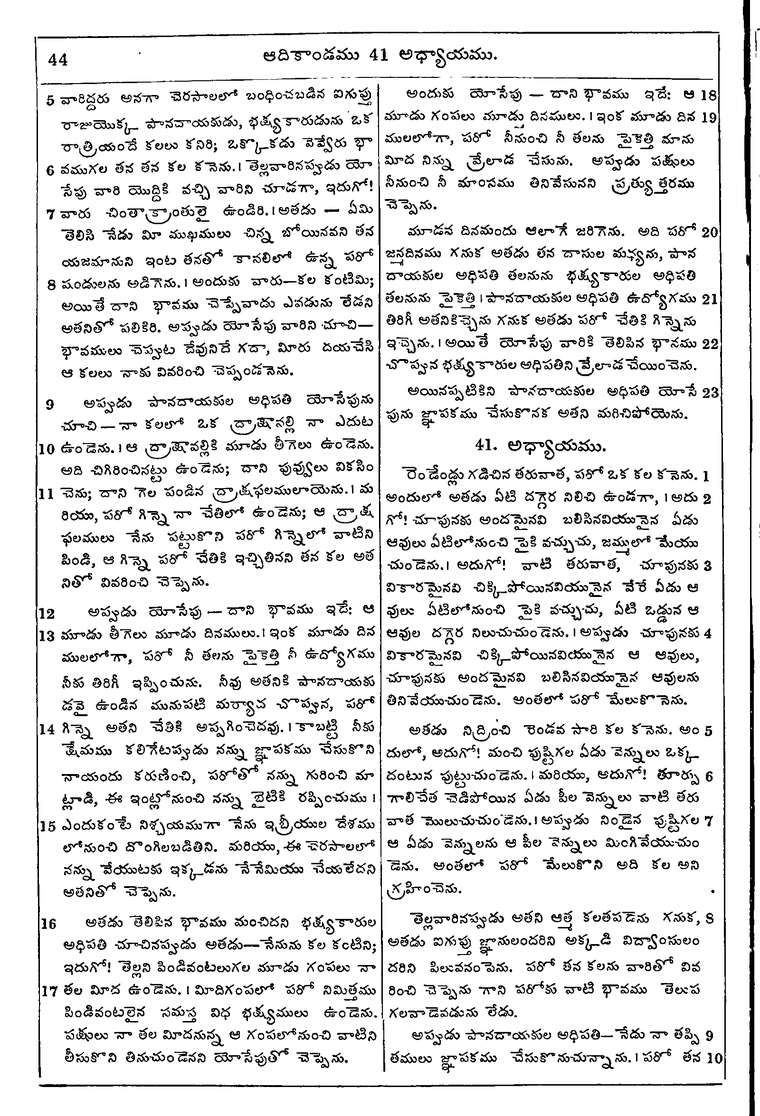 44
ఆదికాండము 41 అధ్యాయము.
5 వారిద్దరు అనగా చెరసాలలో బంధించబడిన ఐగుప్తు
రాజుయొక్క పానదాయకుడు, భక్ష్యకారుడును ఒక
రాత్రియందే కలలు కనిరి; ఒక్కొకడు వెవ్వేరు భా
6 వముగల తన తన కల కనెను. । తెల్లవారినప్పుడు యో
సేపు వారి యొద్దికి వచ్చి వారిని చూడగా, ఇదుగో!
7 వారు చింతాక్రాంతులై ఉండిరి. । అతడు — ఏమి
తెలిసి నేడు మీ ముఖములు చిన్న బోయినవని తన
యజమానుని ఇంట తనతో కావలిలో ఉన్న పరో
8 పందులను అడిగెను. । అందుకు వారు—కల కంటిమి;
అయితే దాని భావము చెప్పేవాడు ఎవడును లేడని
అతనితో పలికిరి. అప్పుడు యోసేపు వారిని చూచి—
భావములు చెప్పుట దేవునిదే గదా, మీరు దయచేసి
ఆ కలలు నాకు వివరించి చెప్పండనెను.
9 అప్పుడు పానదాయకుల అధిపతి యోసేపును
చూచి — నా కలలో ఒక ద్రాక్షావల్లి నా ఎదుట
10 ఉండెను. । ఆ ద్రాక్షావల్లికి మూడు తీగెలు ఉండెను.
అది చిగిరించినట్టు ఉండెను; దాని పువ్వులు వికసిం
11 చెను; దాని గెల పండిన ద్రాక్షఫలములాయెను. । మ
రియు, పరో గిన్నె నా చేతిలో ఉండెను; ఆ ద్రాక్ష
ఫలములు నేను పట్టుకొని పరో గిన్నెలో వాటిని
పిండి, ఆ గిన్నె పరో చేతికి ఇచ్చితినని తన కల అత
నితో వివరించి చెప్పెను.
12 అప్పుడు యోసేపు — దాని భావము ఇదే: ఆ
13 మూడు తీగెలు మూడు దినములు. । ఇంక మూడు దిన
ములలోగా, పరో నీ తలను పైకెత్తి నీ ఉద్యోగము
నీకు తిరిగీ ఇప్పించును. నీవు అతనికి పానదాయకు
డవై ఉండిన మునుపటి మర్యాద చొప్పున, పరో
14 గిన్నె అతని చేతికి అప్పగించెదవు. । కాబట్టి నీకు
క్షేమము కలిగేటప్పుడు నన్ను జ్ఞాపకము చేసుకొని
నాయందు కరుణించి, పరోతో నన్ను గురించి మా
ట్లాడి, ఈ ఇంట్లోనుంచి నన్ను బైటికి రప్పించుము ।
15 ఎందుకంటే నిశ్చయముగా నేను ఇబ్రీయుల దేశము
లోనుంచి దొంగిలబడితిని. మరియు, ఈ చెరసాలలో
నన్ను వేయుటకు ఇక్కడను నేనేమియు చేయలేదని
అతనితో చెప్పెను.
16 అతడు తెలిపిన భావము మంచిదని భక్ష్యకారుల
అధిపతి చూచినప్పుడు అతడు—నేనును కల కంటిని;
ఇదుగో! తెల్లని పిండివంటలుగల మూడు గంపలు నా
17 తల మీద ఉండెను. । మీదిగంపలో పరో నిమిత్తము
పిండివంటలైన సమస్త విధ భక్ష్యములు ఉండెను.
పక్షులు నా తల మీదనున్న ఆ గంపలోనుంచి వాటిని
తీసుకొని తినుచుండెనని యోసేపుతో చెప్పెను.
అందుకు యోసేపు — దాని భావము ఇదే: ఆ 18
మూడు గంపలు మూడు దినములు. । ఇంక మూడు దిన 19
ములలోగా, పరో నీనుంచి నీ తలను పైకెత్తి మాను
మీద నిన్ను వ్రేలాడ చేసును. అప్పుడు పక్షులు
నీనుంచి నీ మాంసము తినివేసునని ప్రత్యుత్తరము
చెప్పెను.
మూడవ దినమందు ఆలాగే జరిగెను. అది పరో 20
జన్మదినము గనుక అతడు తన దాసుల మధ్యను, పాన
దాయకుల అధిపతి తలనును భక్ష్యకారుల అధిపతి
తలనును పైకెత్తి । పానదాయకుల అధిపతి ఉద్యోగము 21
తిరిగీ అతనికిచ్చెను గనుక అతడు పరో చేతికి గిన్నెను
ఇచ్చెను. । అయితే యోసేపు వారికి తెలిపిన భావము 22
చొప్పున భక్ష్యకారుల అధిపతిని వ్రేలాడ చేయించెను.
అయినప్పటికిని పానదాయకుల అధిపతి యోసే 23
పును జ్ఞాపకము చేసుకొనక అతని మరిచిపోయెను.
41. అధ్యాయము.
రెండేండ్లు గడిచిన తరువాత, పరో ఒక కల కనెను. 1
అందులో అతడు ఏటి దగ్గెర నిలిచి ఉండగా, । అదు 2
గో! చూపునకు అందమైనవి బలిసినవియునైన ఏడు
ఆవులు ఏటిలోనుంచి పైకి వచ్చుచు, జమ్ములో మేయు
చుండెను. । అదుగో! వాటి తరువాత, చూపునకు 3
వికారమైనవి చిక్కిపోయినవియునైన వేరే ఏడు ఆ
వులు ఏటిలోనుంచి పైకి వచ్చుచు, ఏటి ఒడ్డున ఆ
ఆవుల దగ్గెర నిలుచుచుండెను. । అప్పుడు చూపునకు 4
వికారమైనవి చిక్కిపోయినవియునైన ఆ ఆవులు,
చూపునకు అందమైనవి బలిసినవియునైన ఆవులను
తినివేయుచుండెను. అంతలో పరో మేలుకొనెను.
అతడు నిద్రించి రెండవ సారి కల కనెను. అం 5
దులో, అదుగో! మంచి పుష్టిగల ఏడు వెన్నులు ఒక్క
దంటున పుట్టుచుండెను. । మరియు, అదుగో! తూర్పు 6
గాలిచేత చెడిపోయిన ఏడు పీల వెన్నులు వాటి తరు
వాత మొలుచుచుండెను. । అప్పుడు నిండైన పుష్టిగల 7
ఆ ఏడు వెన్నులను ఆ పీల వెన్నులు మింగివేయుచుం
డెను. అంతలో పరో మేలుకొని అది కల అని
గ్రహించెను.
తెల్లవారినప్పుడు అతని ఆత్మ కలతపడెను గనుక, 8
అతడు ఐగుప్తు జ్ఞానులందరిని అక్కడి విద్వాంసులం
దరిని పిలువనంపెను. పరో తన కలను వారితో వివ
రించి చెప్పెను గాని పరోకు వాటి భావము తెలుప
గలవాడెవడును లేడు.
అప్పుడు పానదాయకుల అధిపతి—నేడు నా తప్పి 9
తములు జ్ఞాపకము చేసుకొనుచున్నాను. । పరో తన 10